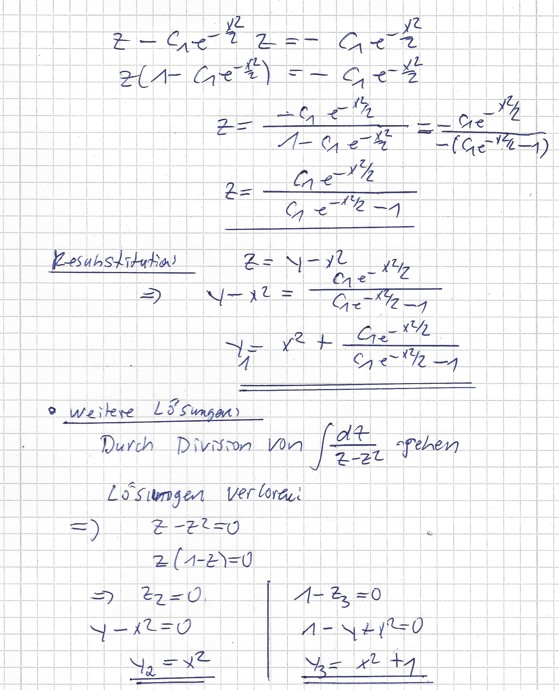 z - C₁e^(-x²/2) z = - C₁e^(-x²/2)
z(1 - C₁e^(-x²/2)) = - C₁e^(-x²/2)
z = (-C₁ e^(-x²/2))/(1 - C₁ e^(-x²/2)) = (-C₁e^(-x²/2))/(-(C₁e^(-x²/2) - 1))
z = (C₁e^(-x²/2))/(C₁ e^(-x²/2) - 1)
Resubstitution: z = y - x²
⇒ y - x² = (C₁e^(-x²/2))/(C₁e^(-x²/2) - 1)
y₁ = x² + (C₁e^(-x²/2))/(C₁e^(-x²/2) - 1)
• weitere Lösungen:
Durch Division von ∫ dz/(z-z²) gehen
Lösungen verloren:
⇒ z - z² = 0
z(1-z) = 0
⇒ z₂ = 0. 1 - z₃ = 0
y - x² = 0 1 - y + x² = 0
y₂ = x² y₃ = x² + 1